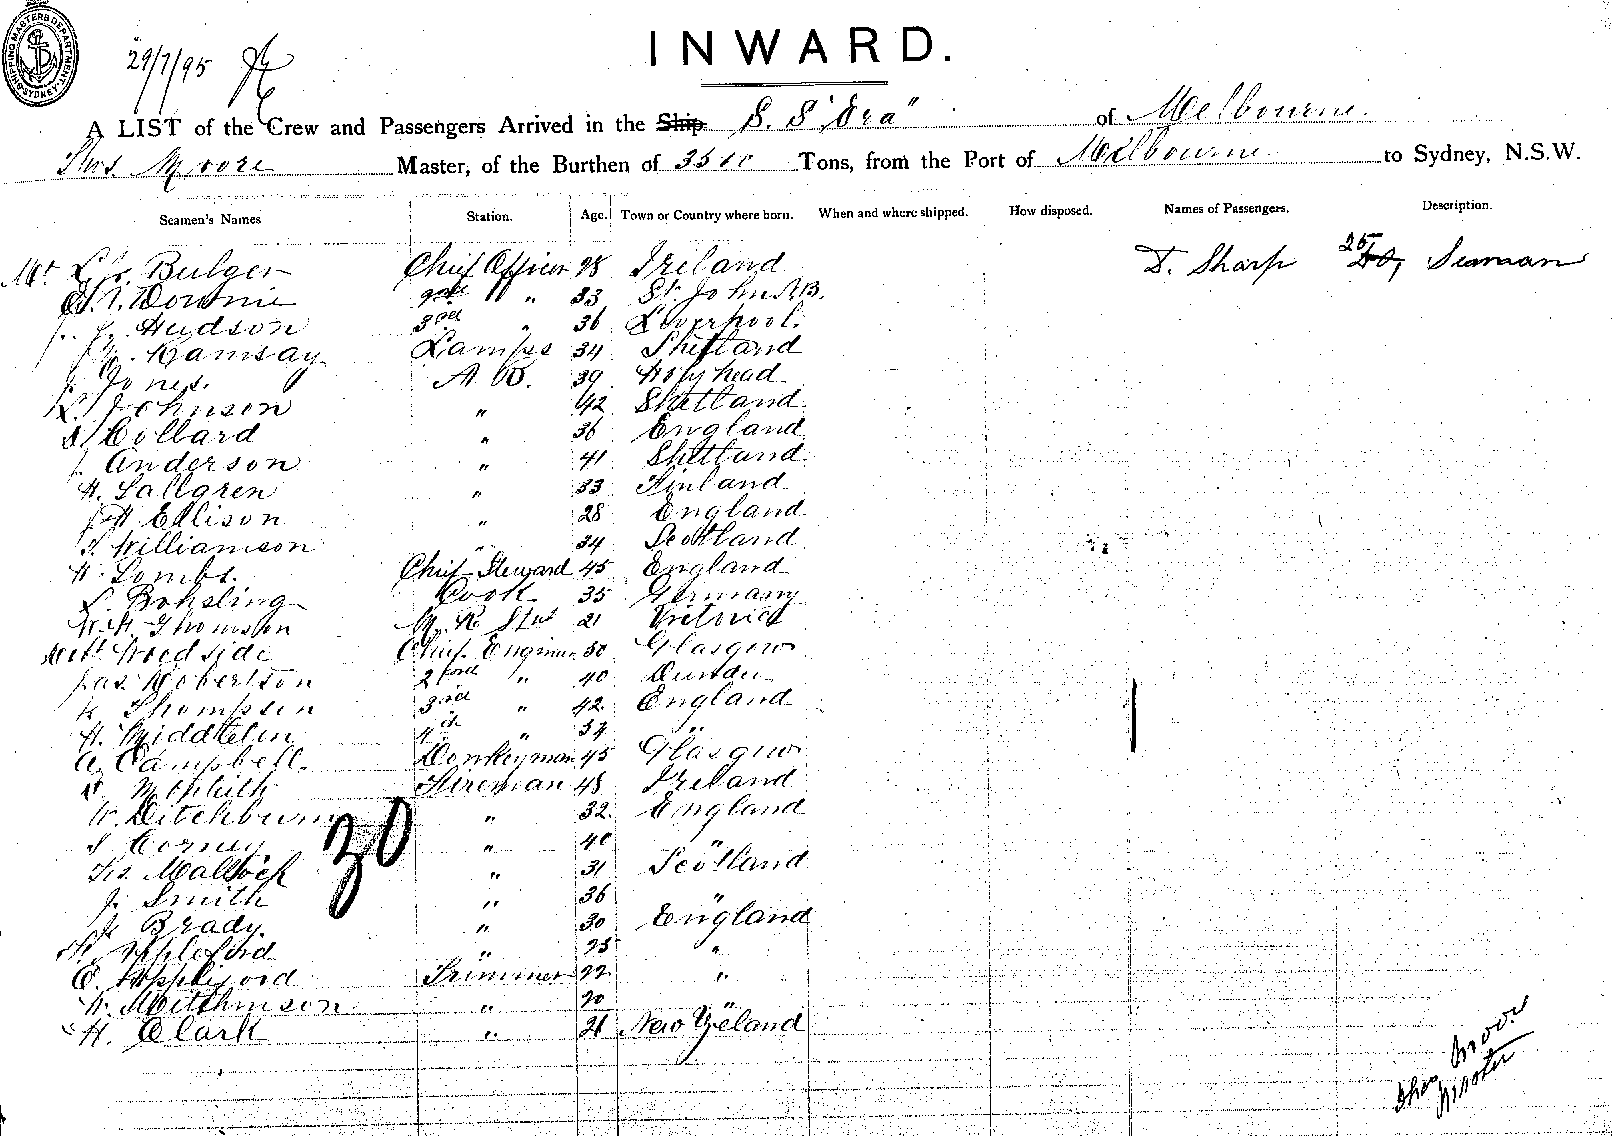 SHIPPING MASTERS DEPARTMENT SYDNEY
29/7/95
INWARD.
A LIST of the Crew and Passengers Arrived in the Ship S. S "Era" of Melbourne.
Thos Moore Master, of the Burthen of 3500 Tons, from the Port of Melbourne to Sydney, N.S.W.
Seamen's Names Station. Age. Town or Country where born. When and where shipped. How disposed. Names of Passengers. Description.
Bulger Chief Officer 28 Ireland D. Sharp 25 Seaman
Downie 2nd " " 33 St. John N.B.
Hudson 3rd " 36 Liverpool.
Ramsay Lamps 34 Shetland
J. Jones. A. B. 39 Holyhead
L. Johnson " 42 Shetland
Collard " 36 England
J. Anderson " 41 Shetland
H. Sallgren " 33 Finland
Ellison " 28 England
Williamson " 34 Scotland
Chief Steward 45 England
Cook 35 Germany
Thomson M. R. Stwd 21 Victoria
Woodside Chief Engineer 50 Glasgow
Jas Robertson 2nd " 40 Dundee
Thompson 3rd " 42 England
H. 4th "
A. Campbell. Donkeyman 45 Glasgow
Fireman 48 Ireland
W. Ditchburn " 32 England
Corney " 40 "
" 31 Scotland
J. Smith " 36 "
Brady. " 30 England
" 25 "
Trimmer 22 "
" 20 "
H. Clark " 21 New Zeland
30
Thos Moore
Master